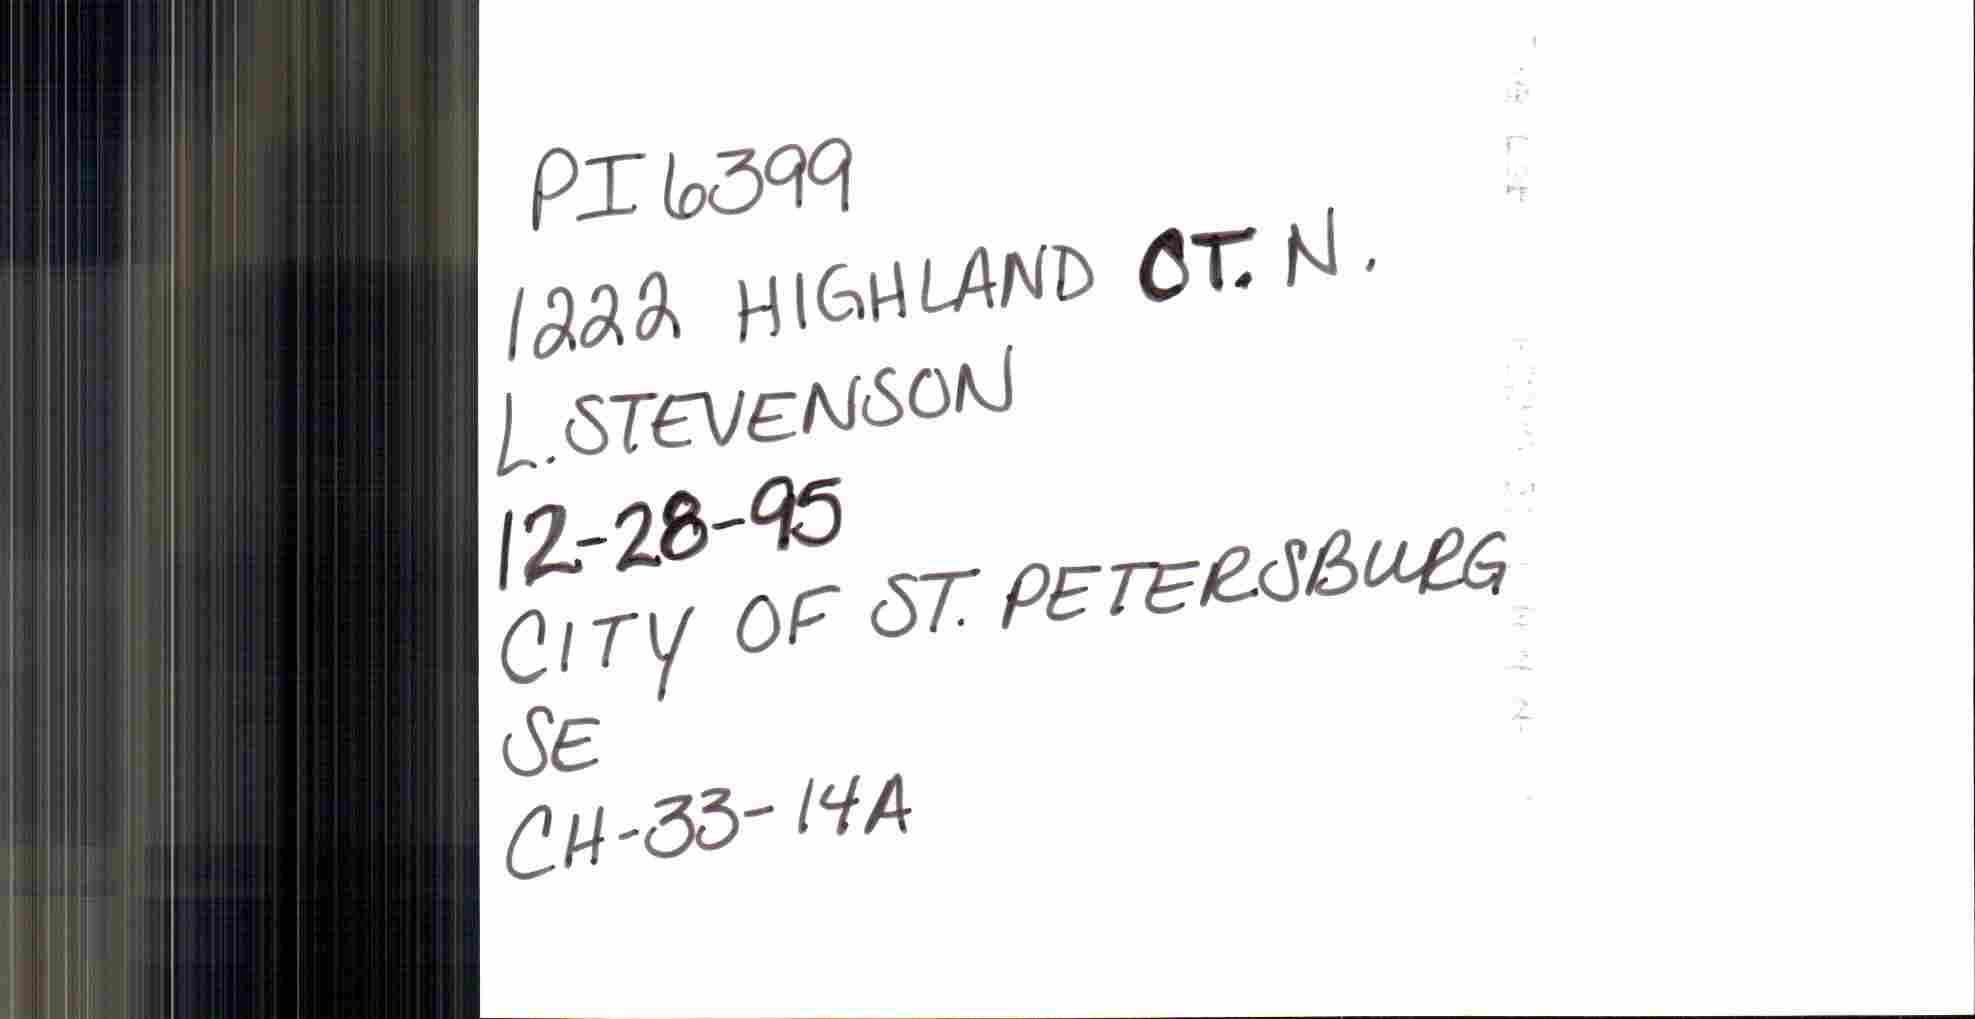 PI 6399
1222 HIGHLAND CT. N.
L. STEVENSON
12-28-95
CITY OF ST. PETERSBURG
SE
CH-33-14A